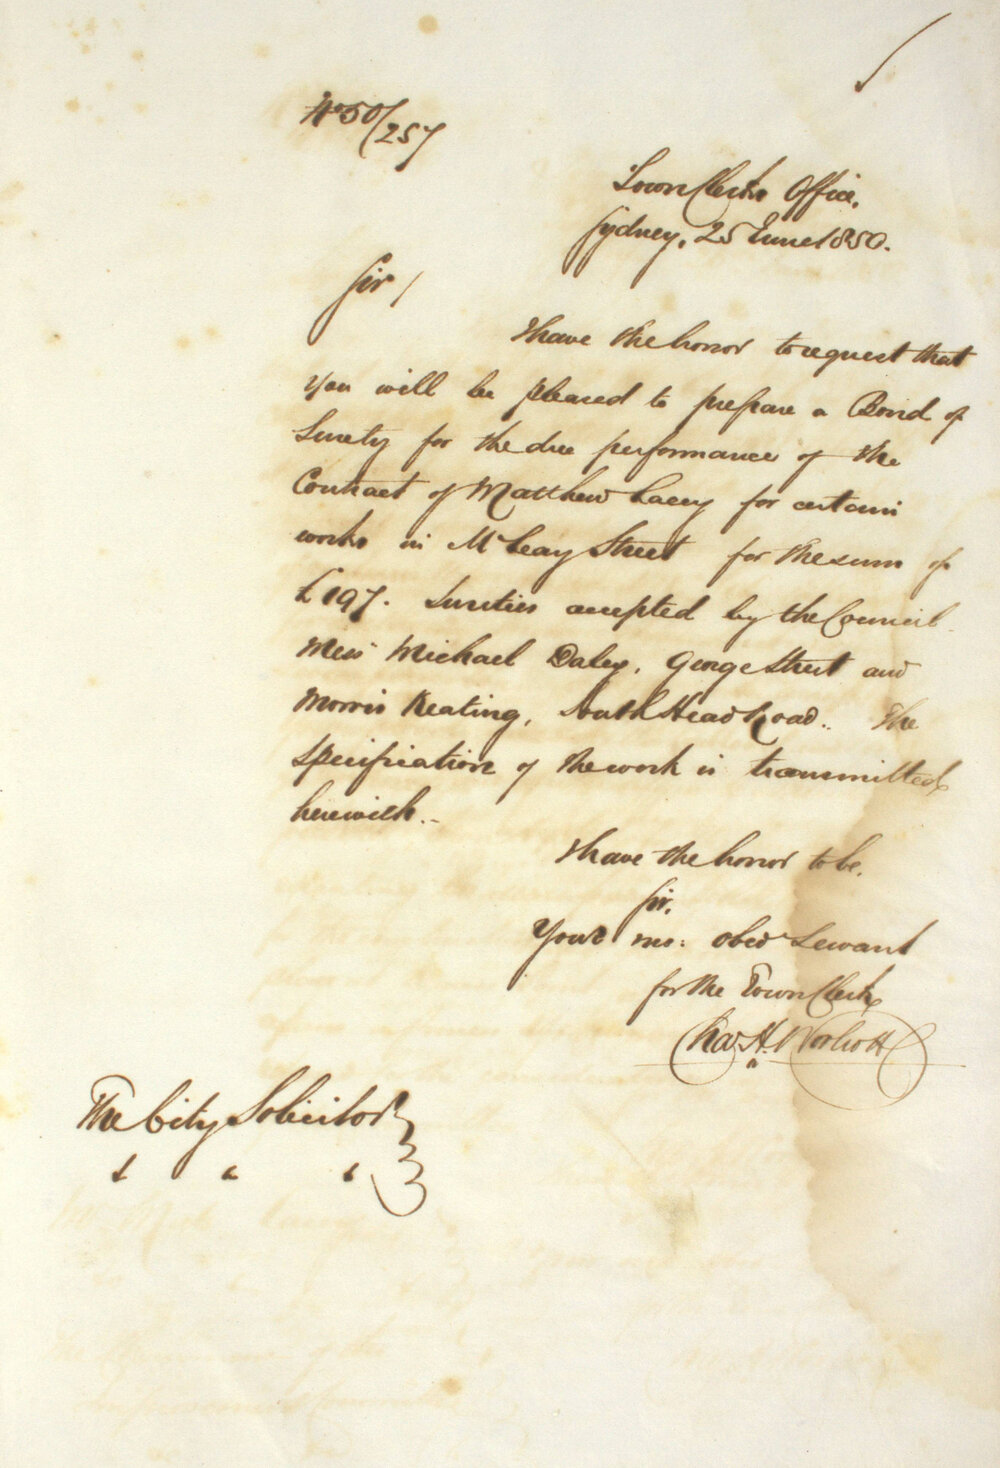 No 50/257
Town Clerks Office,
Sydney, 25 June 1850.
Sir /
I have the honor to request that
you will be pleased to prepare a Bond of
Surety for the due performance of the
Contract of Matthew Lacey for certain
works in McLeay Street for the sum of
£197. Sureties accepted by the Council
Mess Michael Daley, George Street and
Morris Keating, South Head Road.. The
specification of the work is transmitted
herewith.-
I have the honor to be,
Sir,
Your mo: obed Servant
for the Town Clerk
Chas. H. Woolcott
The City Solicitor